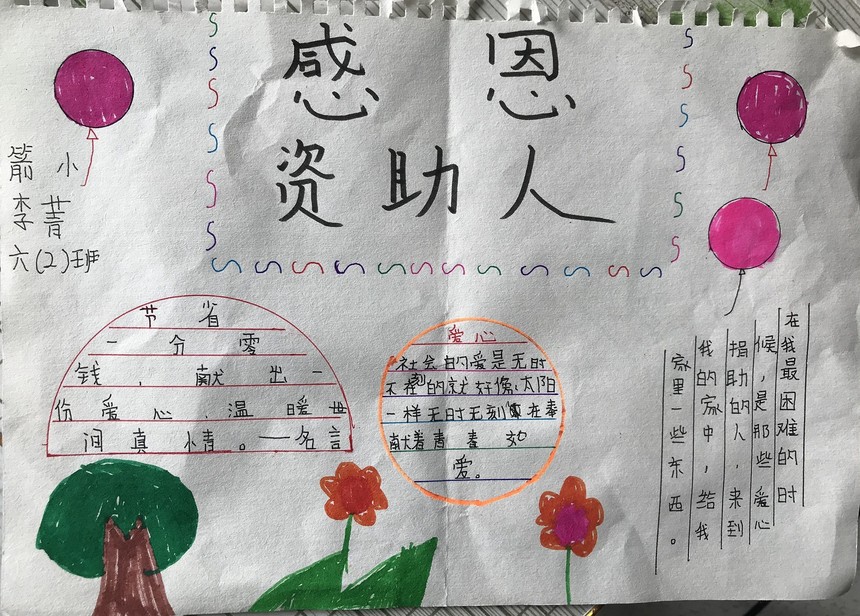 感恩
资助人
箭小
李菁
六(2)班
节省
一分零
钱,献出一
份爱心,温暖世
间真情。——名言
爱心
社会的爱是无时
不在的就好像太阳
一样无时无刻在奉
献着青春
爱。
在我最困难的时
候,是那些爱心
捐助的人,来到
我的家中,给我
家里一些东西。